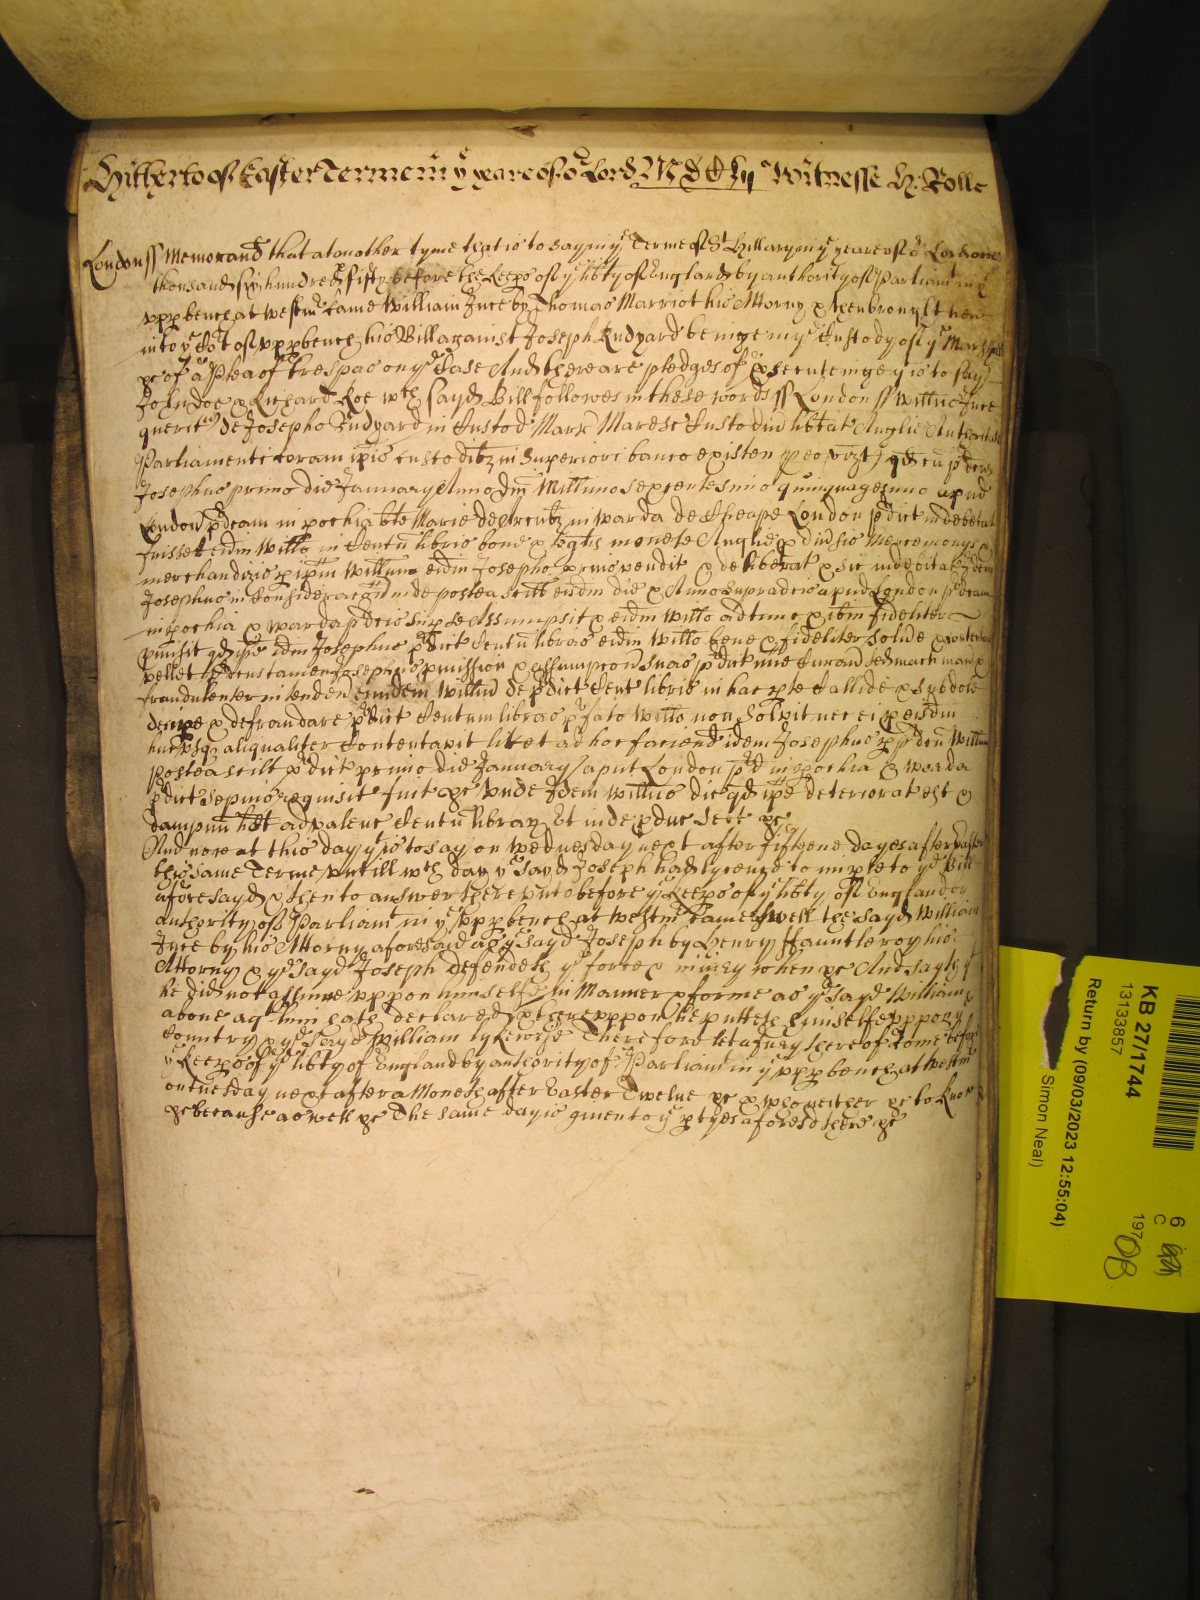 Hitherto of Easter Terme in ye yeare of or Lord MDCLij Witnesse H: Rolle
London ss Memorand that at another tyme that is to say in ye Terme of St Hillary in ye yeare of or Lord one
thousand six hundred fifty before the Keeprs of ye libty of England by authority of Parliamt in ye
vpp bench at Westmr came William Juce by Thomas Marriot his Attorny & then brought here
into ye Cot of vpp bench his Bill against Joseph Rudyard beinge in ye Custody of ye Marshall
&c of a Plea of trespas on ye Case And there are pledges of psecuteinge yt is to say
John Doe & Richard Roe wch sayd Bill followes in these words ss London ss Willius Juce
querit de Josepho Rudyard in Custod Marr Maresc Custodiu libtat Anglie Authoritate
Parliamenti coram ipis custodibz in Superiori banco existen p eo vizt qd cu pdcus
Josephus primo die January Anno Dni Millimo sexcentesimo quinquagesimo apud
London pdcam in pochia bte Marie de Arcubz in Warda de Cheape London pdict indebitat
fuisset eidm Willo in Centu libris bone & legalis monete Anglie p diusis
merchandizis p ipm Willum eidm Josepho prius vendit & deliberat & sic indebitat idem
Josephus in Consideracoe inde postea scilt eisdm die & Anno supradcis apud London pdcam
in pochia & warda pdcis sup se Assumpsit & eidm Willo adtunc & ibm fideliter
pmisit qd ipe idm Josephus pdict Centu libras eidm Willo bene & fideliter soluere & contentare
vellet pdcus tamen Josephus pmission & assumpcon suas pdict mie Curand sed machinan &
fraudulenter intenden eundem Willm de pdict Cent libris in hac pte Callide & subdole
decipe & defraudare pdict Centum libras pfato Willo non solvit nec ei p eisdm
hucusq aliqualiter Contentavit licet ad hoc faciend idem Josephus p pdcu Willum
postea scilt pdict primo die January apud London pd in pochia & warda
pdict sepius requisit fuit &c vnde Idem Willus dic qd ipe deteriorat est &
dampnu het ad valenc Centu librar Et inde pduc sect &c
And now at this day yt is to say on Wednesday next after fifteene dayes after Easter
this same Terme vntill wch day ye sayd Joseph had lycence to imple to ye Bill
aforesayd & then to answer there vnto before ye Keeprs of ye libty of England by
authority of Parliamt in ye vpp bench at Westmr came aswell the sayd William
Juce by his Attorny aforesaid as ye sayd Joseph by Henry Fauntleroy his
Attorny & ye sayd Joseph defendeth ye force & iniury when &c And sayth yt
he did not assume vppon himselfe in Manner & forme as ye sayd William
aboue agt him hath declared & thereuppon he putteth himselfe vppon ye
Country & ye sayd William lykewise Therefore let a Jury thereof come before
ye Keeprs of ye libty of England by authority of Parliamt in ye vpp bench at Westmr
on tuesday next after a Moneth after Easter Twelve &c & who neither &c to know
&c because aswell &c The same day is given to ye ptyes aforesd there &c
KB 27/1744
13133857
Return by (09/03/2023 12:55:04)
Simon Neal)
6
C
197
08